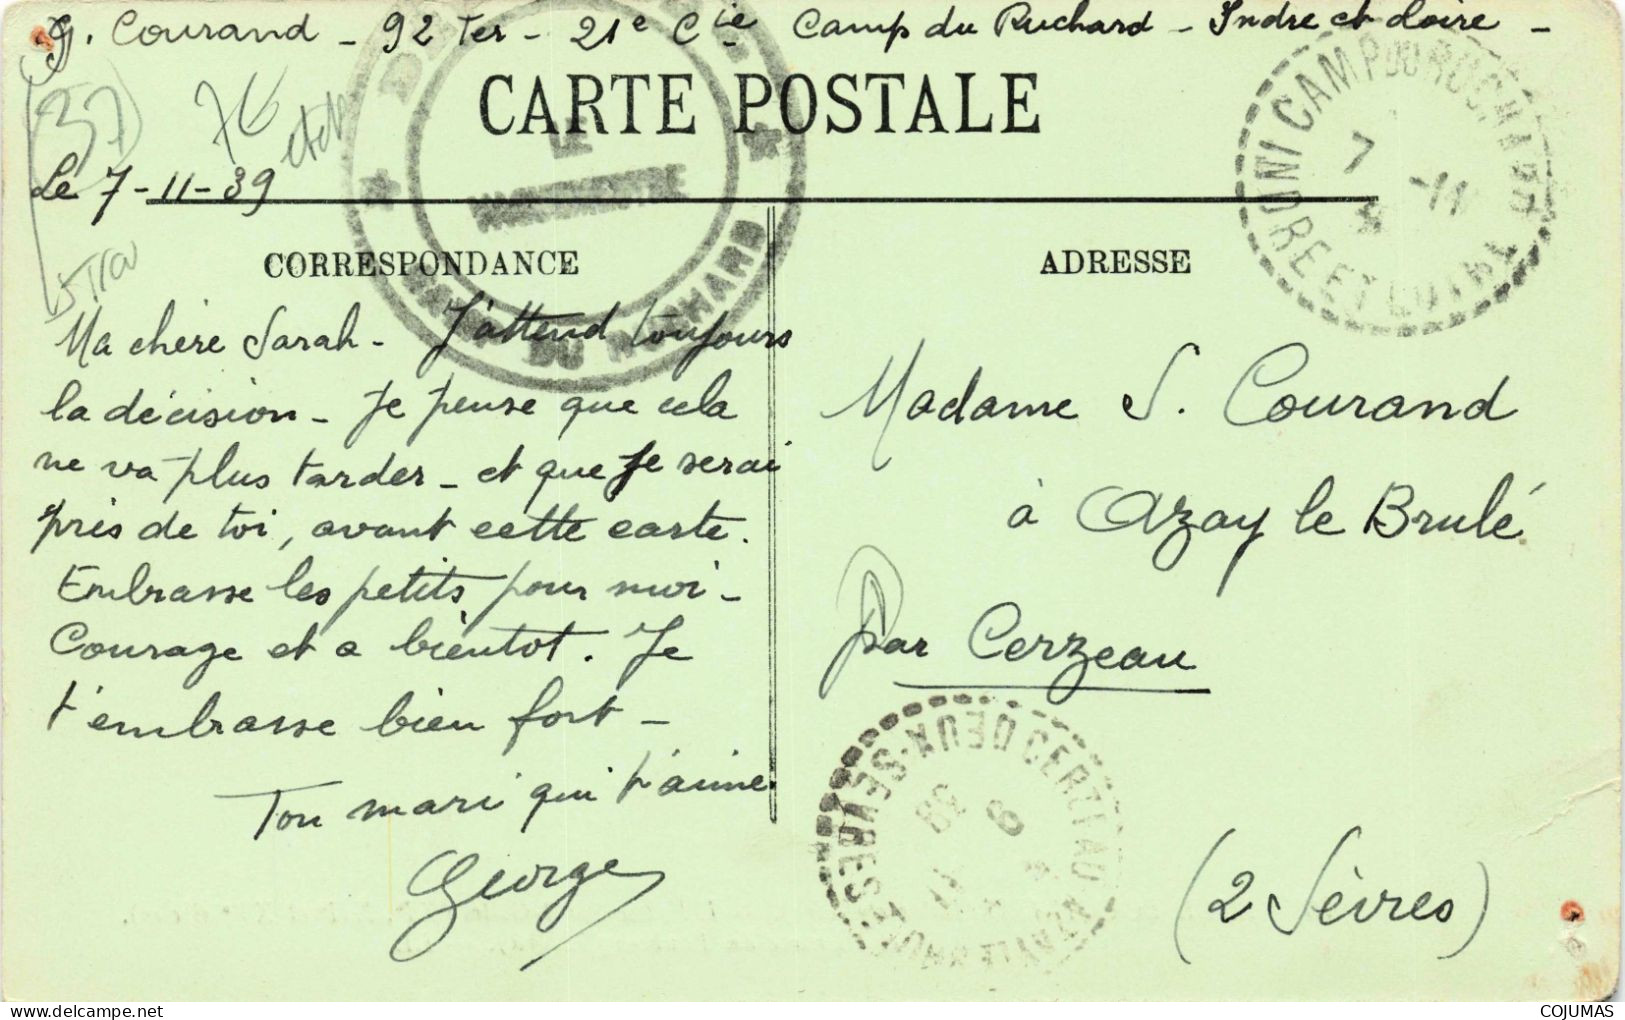 G. Courand - 92 Ter - 21e Cie Camp du Ruchard - Indre et Loire -
CARTE POSTALE
37)
76
Le 7-11-39
LE
VAGUEMESTRE
DU RUCHARD
CAMP DU RUCHARD
INDRE ET LOIRE
7 -11
CORRESPONDANCE
ADRESSE
Ma chère Sarah - J'attend toujours
la décision - Je pense que cela
ne va plus tarder - et que je serai
près de toi, avant cette carte.
Embrasse les petits pour moi -
Courage et a bientot. Je
t'embrasse bien fort -
Ton mari qui t'aime.
George
Madame S. Courand
à Azay le Brulé
Par Cerzeau
(2 Sèvres)
CERZEAU
DEUX-SEVRES
8
11
39
COJUMAS